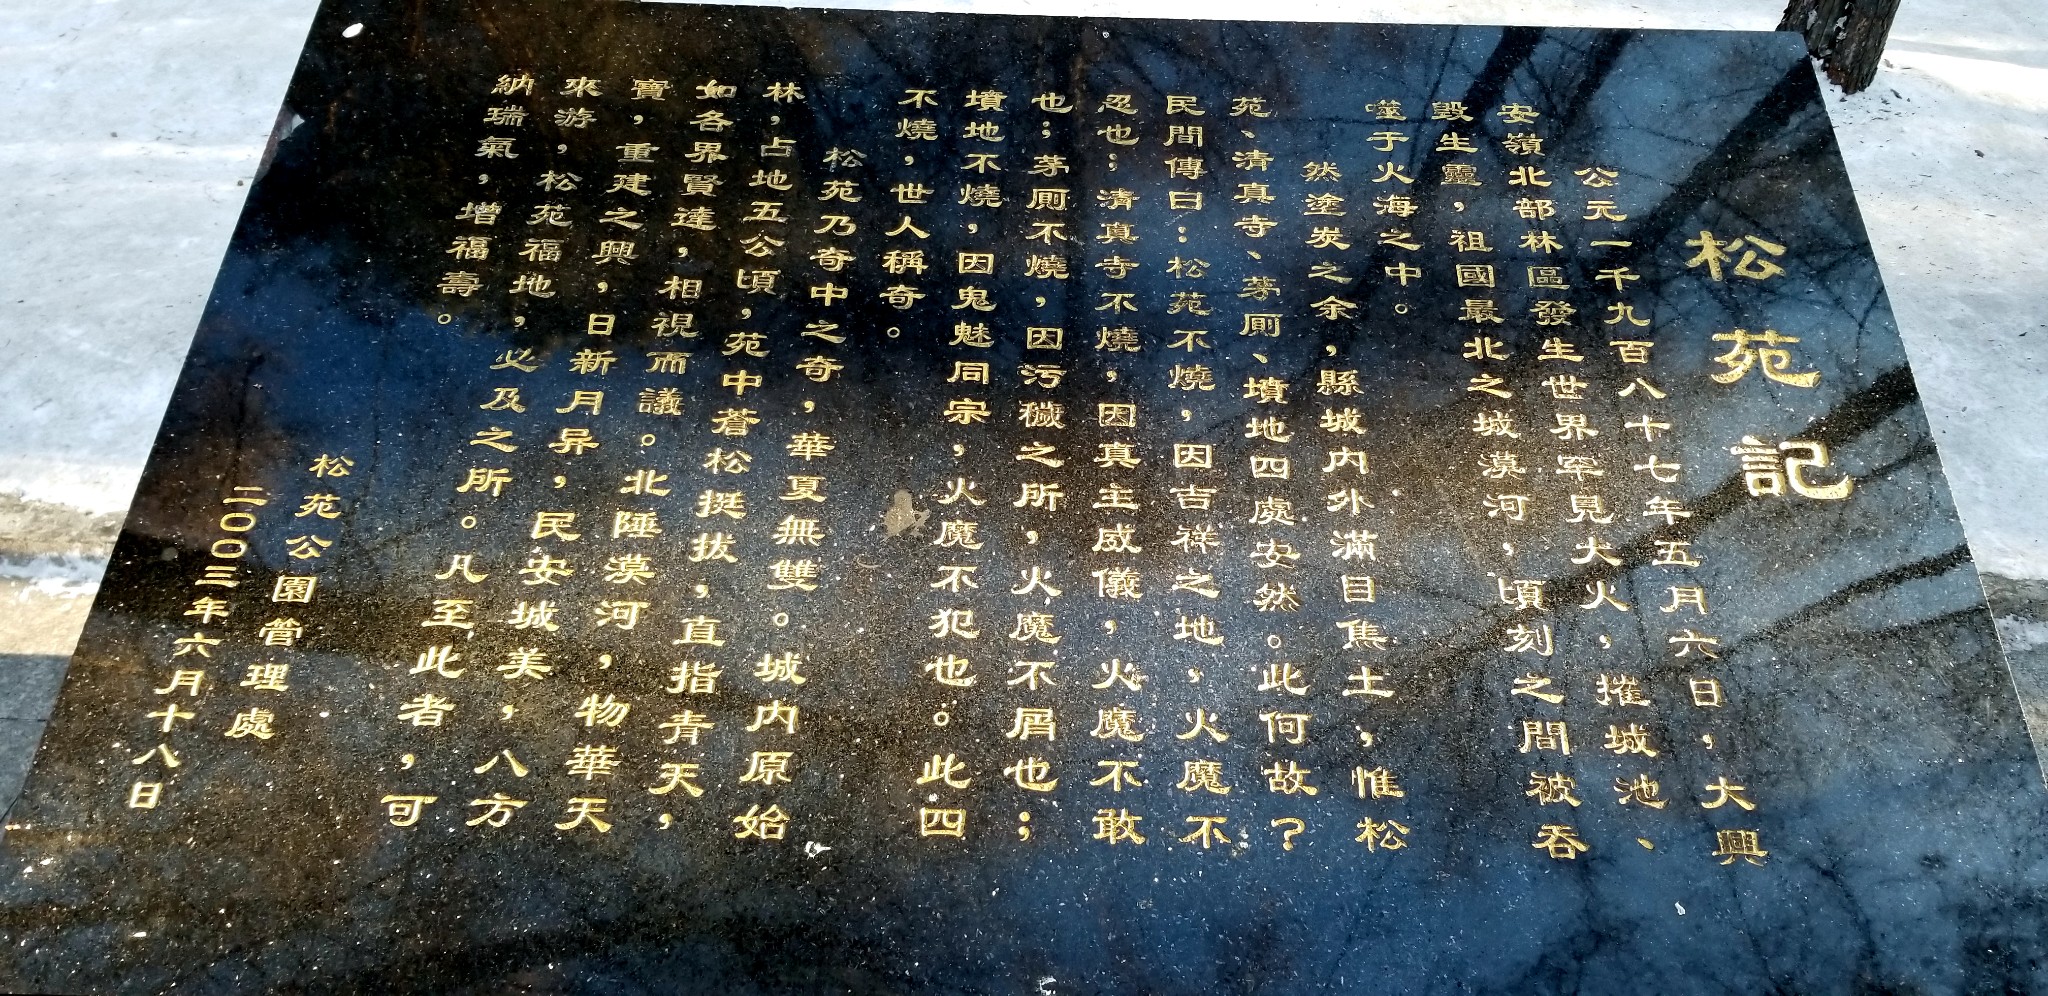 松苑記
公元一千九百八十七年五月六日，大興
安嶺北部林區發生世界罕見大火，摧城池、
毀生靈，祖國最北之城漠河，頃刻之間被吞
噬于火海之中。
然塗炭之余，縣城内外滿目焦土，惟松
苑、清真寺、茅厠、墳地四處安然。此何故？
民間傳曰：松苑不燒，因吉祥之地，火魔不
忍也；清真寺不燒，因真主威儀，火魔不敢
也；茅厠不燒，因污穢之所，火魔不屑也；
墳地不燒，因鬼魅同宗，火魔不犯也。此四
不燒，世人稱奇。
松苑乃奇中之奇，華夏無雙。城内原始
林，占地五公頃，苑中蒼松挺拔，直指青天，
如各界賢達，相視而議。北陲漠河，物華天
寶，重建之興，日新月异，民安城美，八方
來游，松苑福地，必及之所。凡至此者，可
納瑞氣，增福壽。
松苑公園管理處
二00三年六月十八日